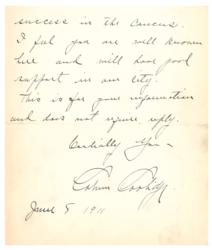 success in the Caucus.
I feel you are well known
here and will have good
support in our city.
This is for your information
and does not require reply.
Cordially Yours
Calvin Coolidge
June 5 1911